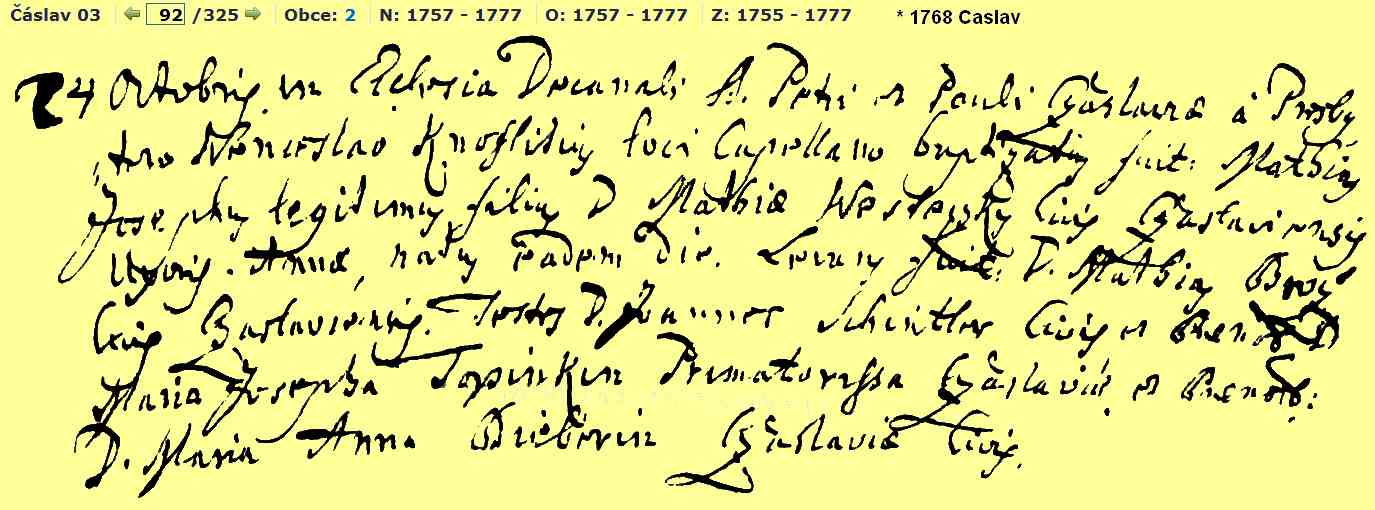 Čáslav 03 92 /325 Obce: 2 N: 1757 - 1777 O: 1757 - 1777 Z: 1755 - 1777 * 1768 Caslav
24 Octobris in Eclesia Decanali S. Petri et Pauli Czaslaviæ à Presby
tero Wenceslao loci Capellano baptizatus fuit: Mathias
Josephus legitimus filius D Mathiæ Civis Czaslaviensis
Uxoris Annæ, natus eadem Die. Levans fuit: D. Mathias
Civis Czaslaviensis. Testes D. Joannes Schintler Civis et
Maria Josepha Topinkin Primatorissa Czaslaviæ et
D. Maria Anna Bieberin Czaslaviæ Civis.